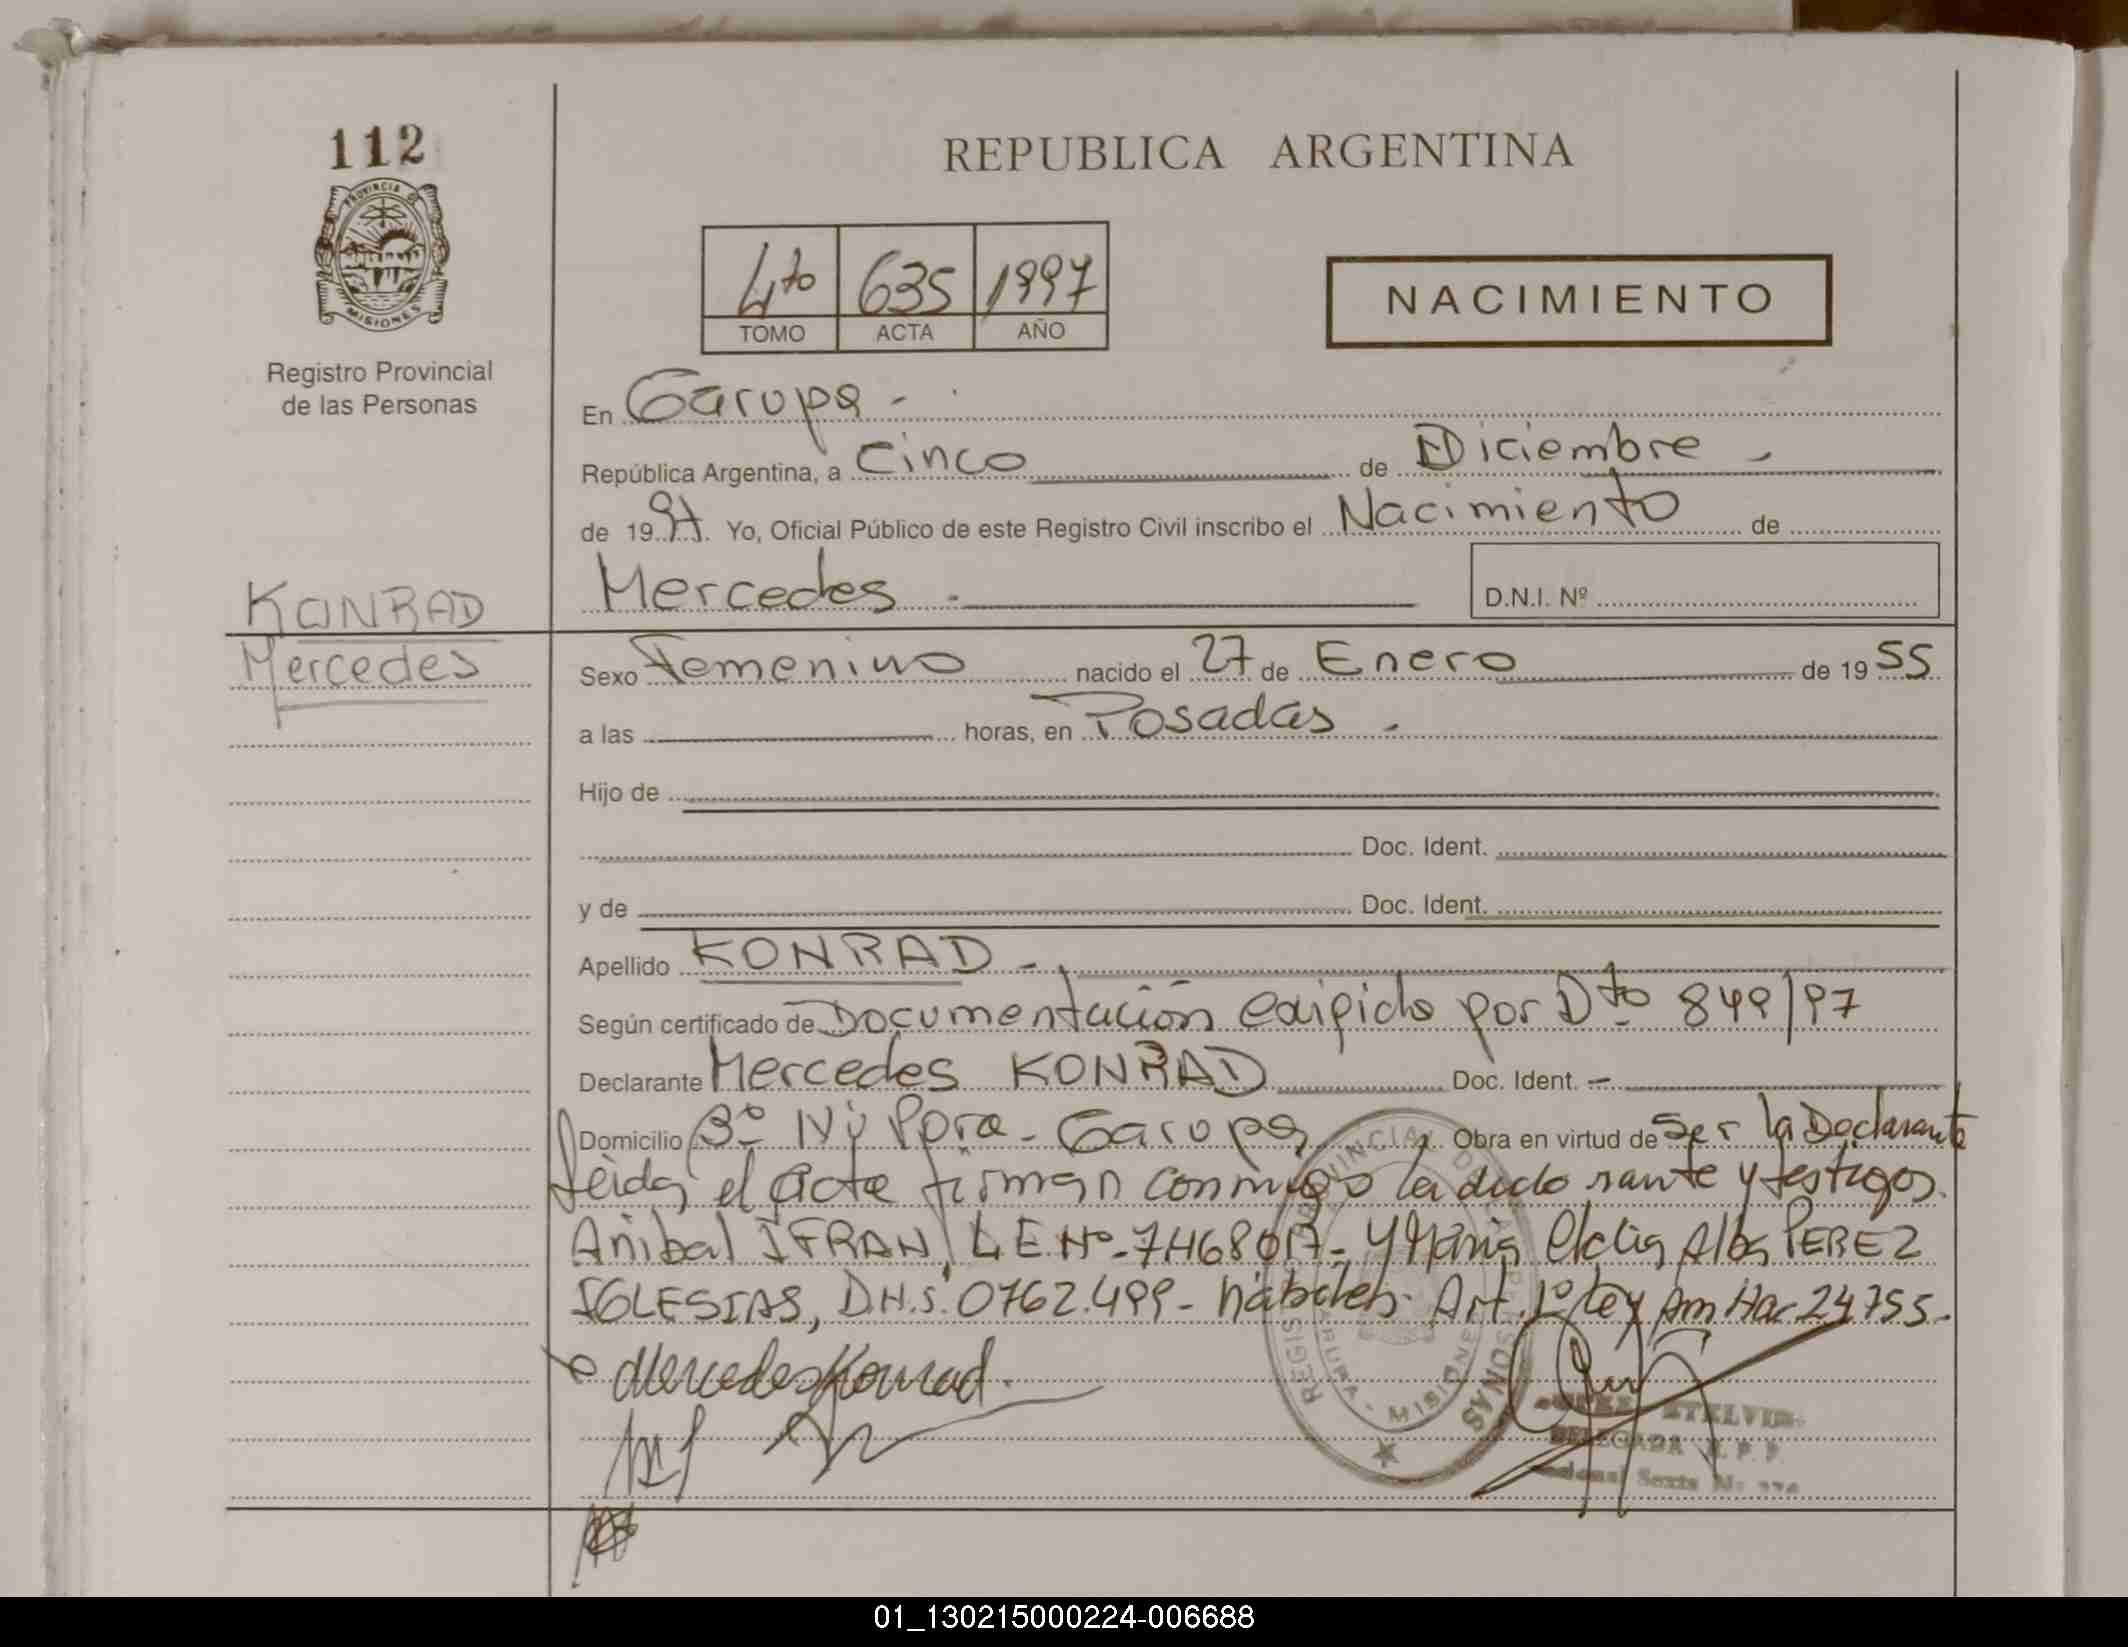 112
REPUBLICA ARGENTINA
PROVINCIA DE
MISIONES
4to 635 1997
TOMO ACTA AÑO
NACIMIENTO
Registro Provincial
de las Personas
En Garupa -
República Argentina, a Cinco de Diciembre -
de 1997. Yo, Oficial Público de este Registro Civil inscribo el Nacimiento de
Mercedes - D.N.I. Nº
KONRAD
Mercedes
Sexo Femenino nacido el 27 de Enero de 1955
a las horas, en Posadas -
Hijo de
Doc. Ident.
y de Doc. Ident.
Apellido KONRAD -
Según certificado de Documentación exigida por Dto 849/97
Declarante Mercedes KONRAD Doc. Ident. -
Domicilio Bº Ñu Pora - Garupa Obra en virtud de Ser la Declarante
leida el acta firman conmigo la declarante y testigos.
Anibal IFRAN, L.E.Nº- Y Maria Alba PEREZ
IGLESIAS, 0762.499 - Art. 1º Ley 24755.
Mercedes Konrad.
REGISTRO PROVINCIAL DE LAS PERSONAS
GARUPA - MISIONES
DELEGADA R.P.P.
01_130215000224-006688